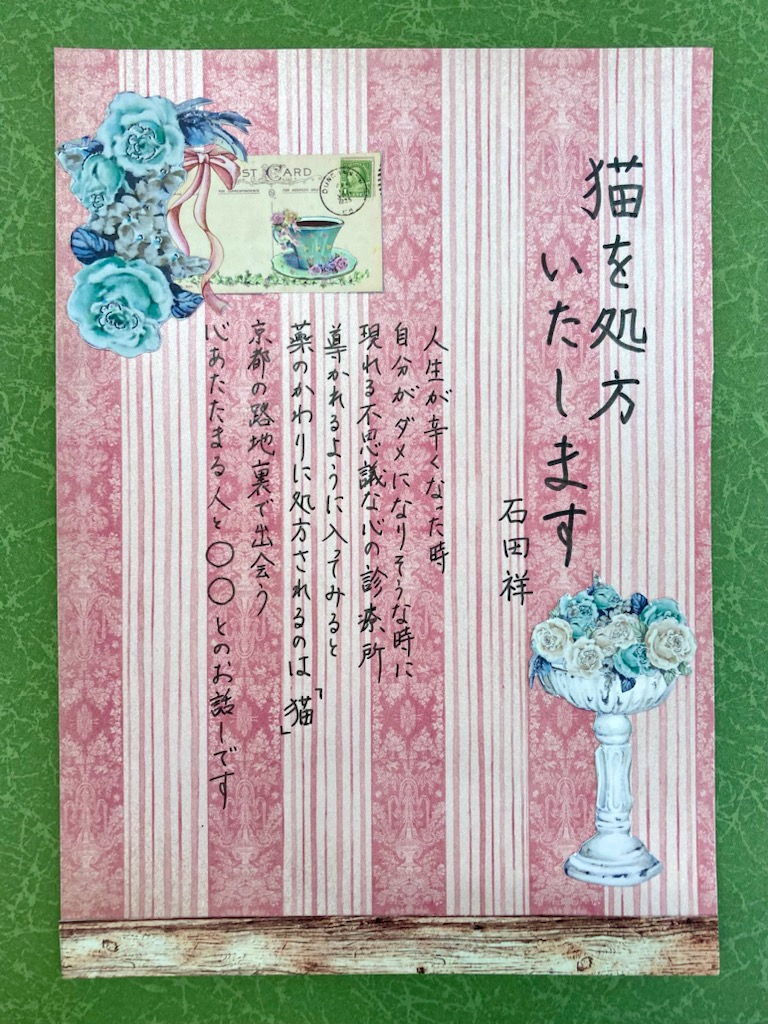 猫を処方
いたします
石田祥
人生が辛くなった時
自分がダメになりそうな時に
現れる不思議な心の診療所
導かれるように入ってみると
薬のかわりに処方されるのは「猫」
京都の路地裏で出会う
心あたたまる人と〇〇とのお話しです
POST CARD